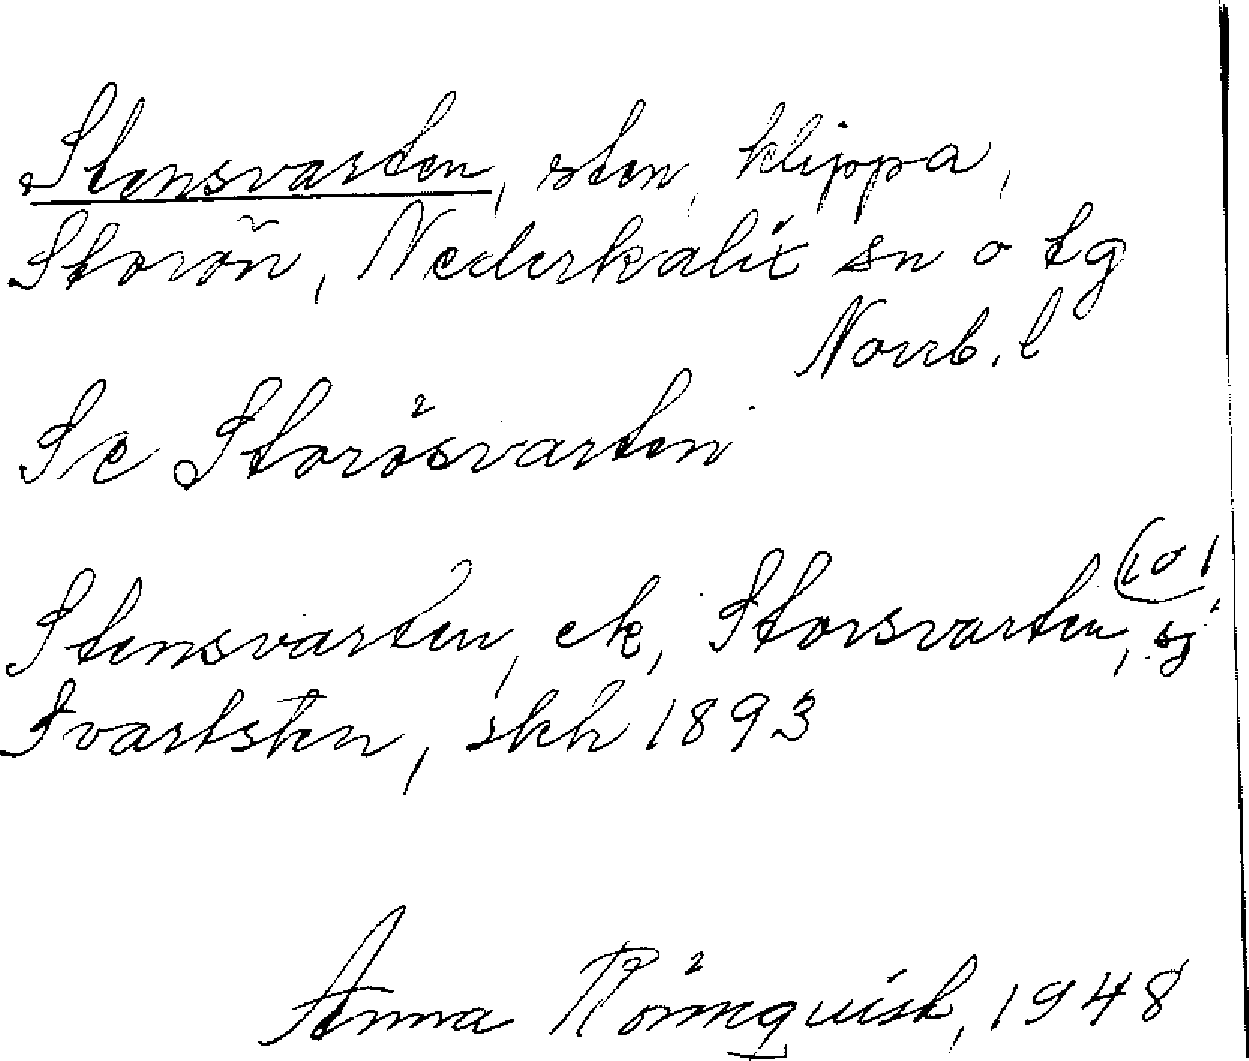 Stensvarten, sten, klippa,
Storön, Nederkalix sn o tg
Norrb. l
Se Storösvarten
Stensvarten, ek, Storsvarten,
Svartsten, skh 1893
Anna Römquist, 1948